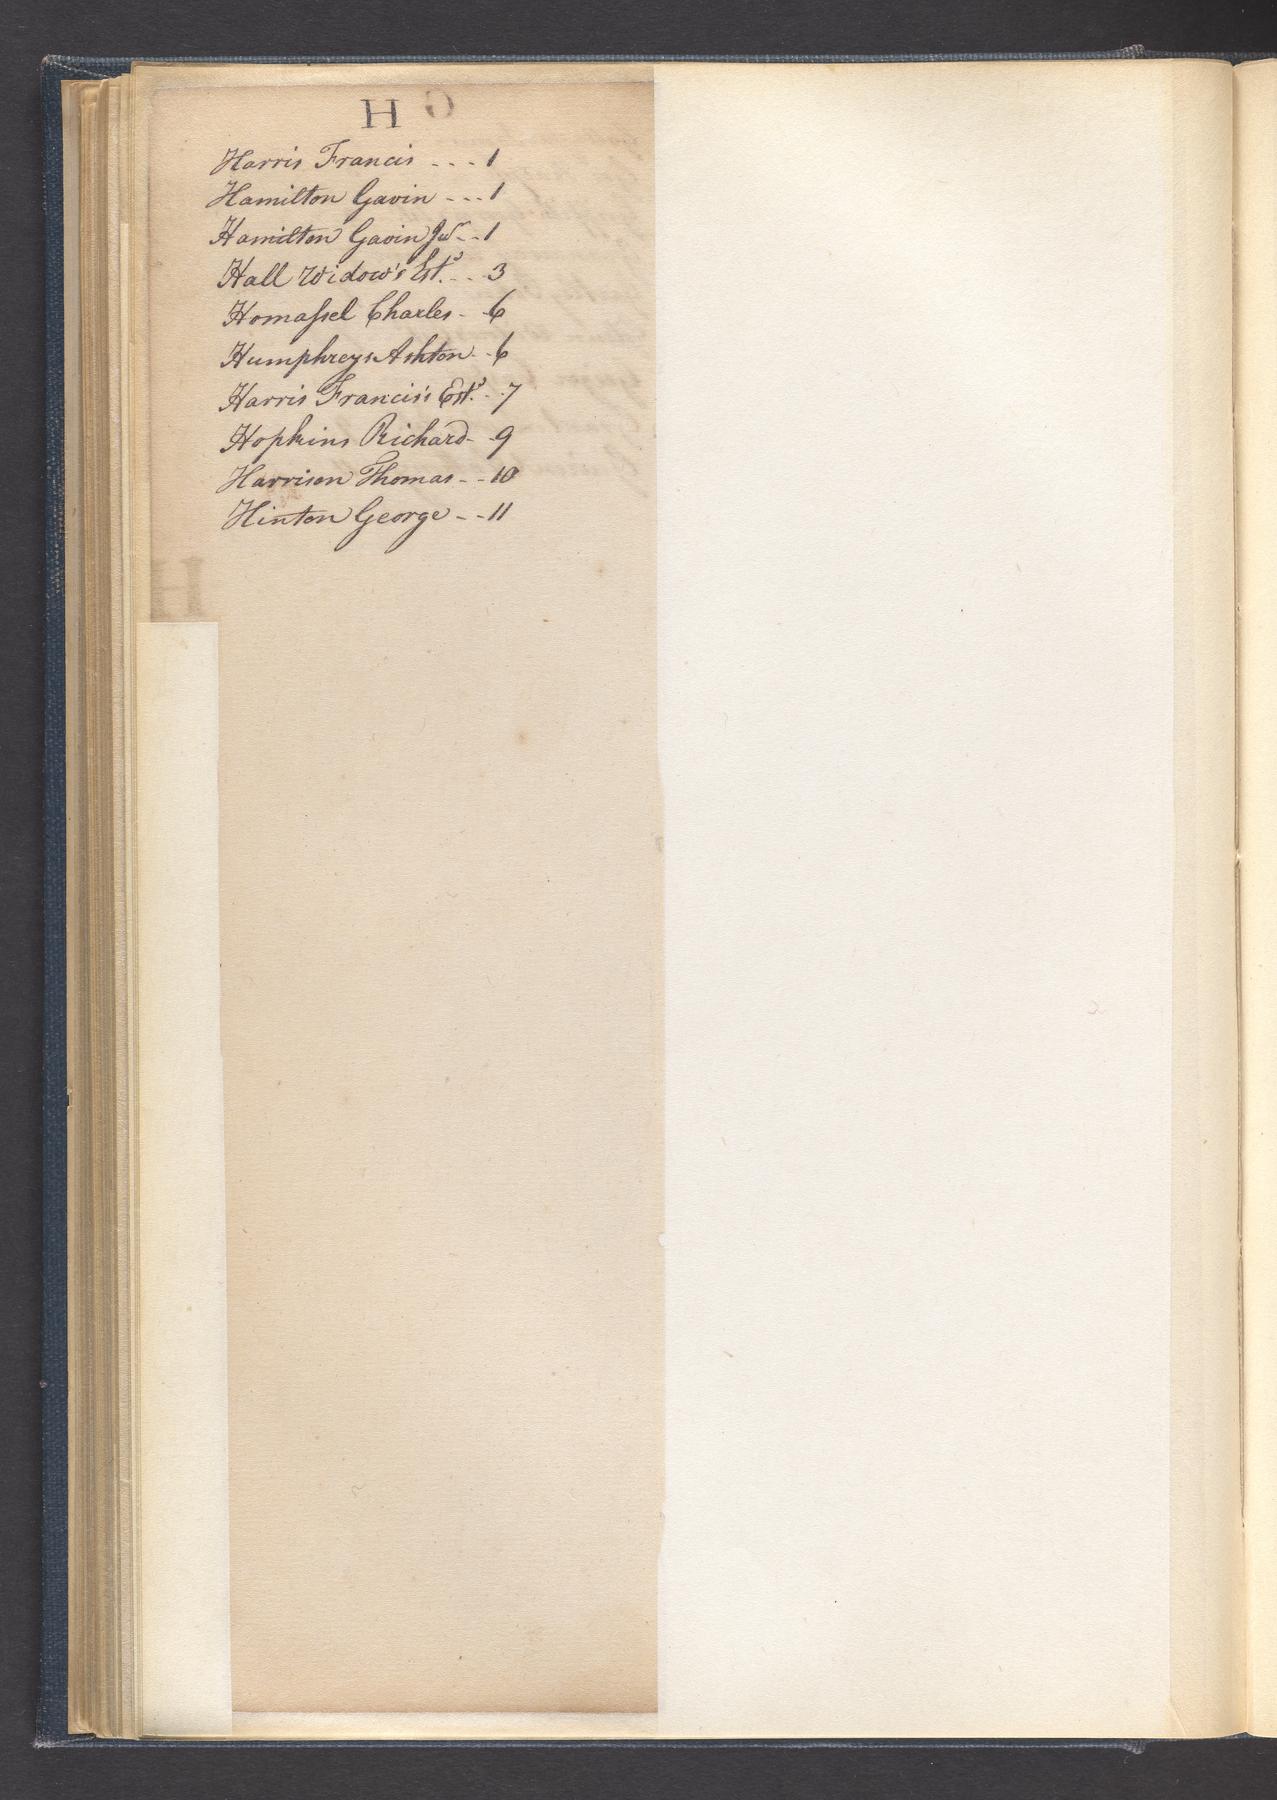 H
Harris Francis - - - 1
Hamilton Gavin - - - 1
Hamilton Gavin Junr - - 1
Hall Widow's Est.s - - - 3
Homaſsel Charles - - 6
Humphreys Ashton - - 6
Harris Francis's Est.s - - 7
Hopkins Richard - - 9
Harrison Thomas - - - 10
Hinton George - - - 11
H